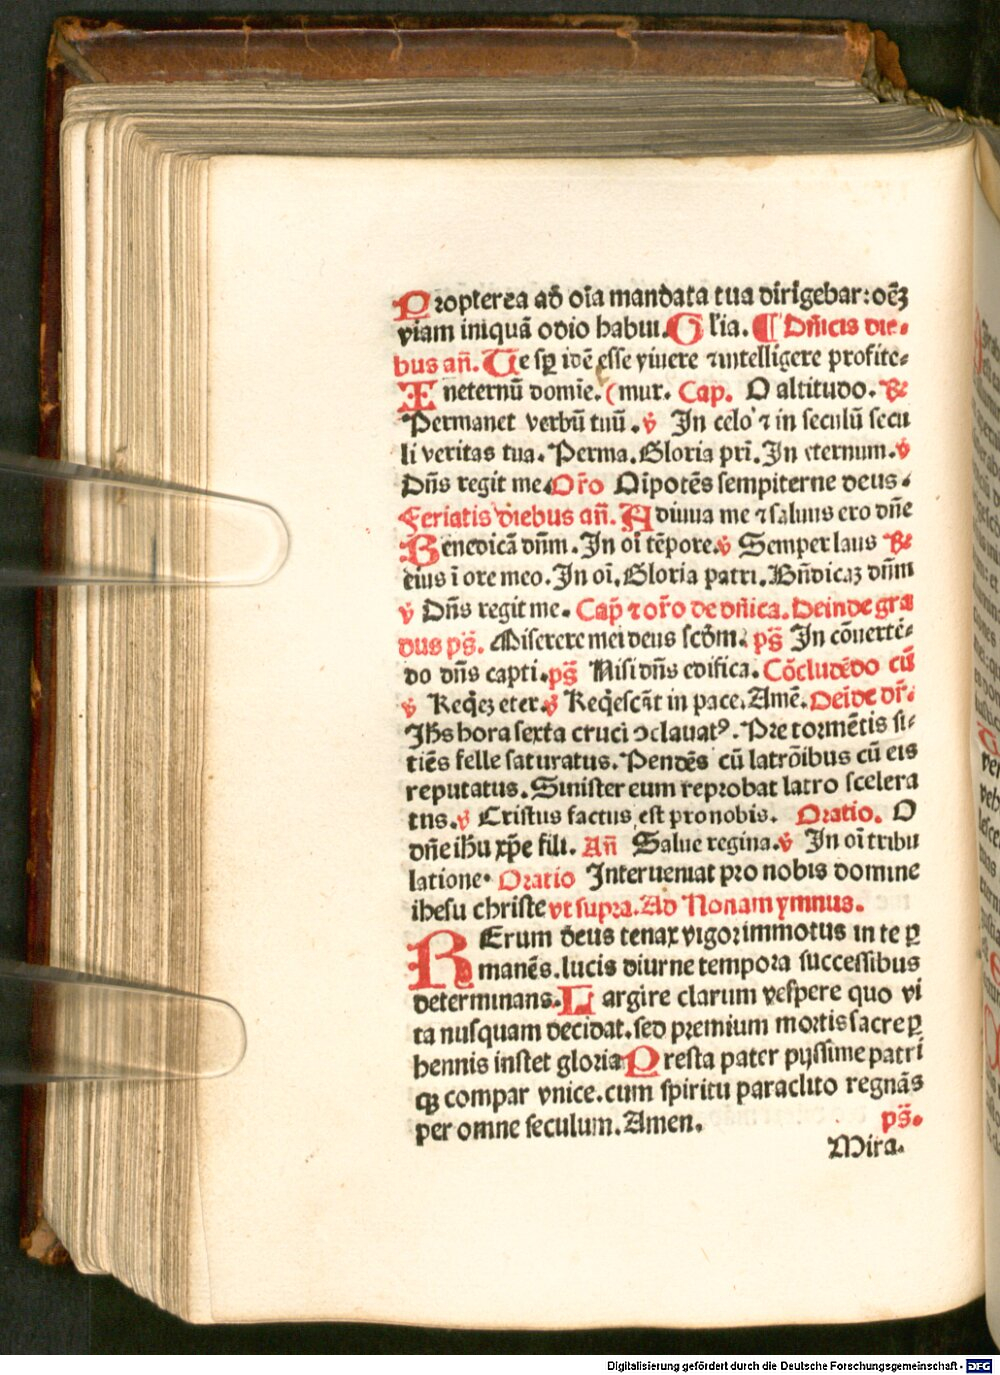 Propterea ad oīa mandata tua dirigebar: oēꝫ
viam iniquā odio habui. Glīa. ¶ Dn̄icis die-
bus an̄. Te sꝑ idē esse viuere ⁊ intelligere profite-
In eternū domīe. (mur. Cap. O altitudo. ℟
Permanet verbū tuū. ℣ In celo ⁊ in seculū secu
li veritas tua. Perma. Gloria pri. In eternum. ℣
Dn̄s regit me. Or̄o Oīpotēs sempiterne deus.
Feriatis diebus an̄. Adiuua me ⁊ saluus ero dn̄e
Benedicā dn̄m. In oī tēpore. ℣ Semper laus ℟
eius ī ore meo. In oī. Gloria patri. Bn̄dicaꝫ dn̄m
℣ Dn̄s regit me. Cap̄ ⁊ or̄o de dn̄ica. Deinde gra
dus ps̄. Miserere mei deus scd̄m. ps̄ In cōuertē-
do dn̄s capti. ps̄ Nisi dn̄s edifica. Cōcludēdo cū
℣ Req̄eꝫ eter. ℣ Req̄escāt in pace. Amē. Deīde dr̄.
Jh̄s hora sexta cruci ↄclauatꝰ. Pre tormētis si-
tiēs felle saturatus. Pendēs cū latrōibus cū eis
reputatus. Sinister eum reprobat latro scelera
tus. ℣ Cristus factus est pro nobis. Oratio. O
dn̄e ih̄u xp̄e fili. An̄ Salue regina. ℣ In oī tribu
latione. Oratio Interueniat pro nobis domine
ihesu christe vt supra. Ad Nonam ymnus.
RErum deus tenax vigor immotus in te ꝑ
manēs. lucis diurne tempora successibus
determinans. Largire clarum vespere quo vi
ta nusquam decidat. sed premium mortis sacre ꝑ
hennis instet gloria Presta pater pijssime patri
qꝫ compar vnice. cum spiritu paraclito regnās
per omne seculum. Amen. ps̄.
Mira.
Digitalisierung gefördert durch die Deutsche Forschungsgemeinschaft - DFG